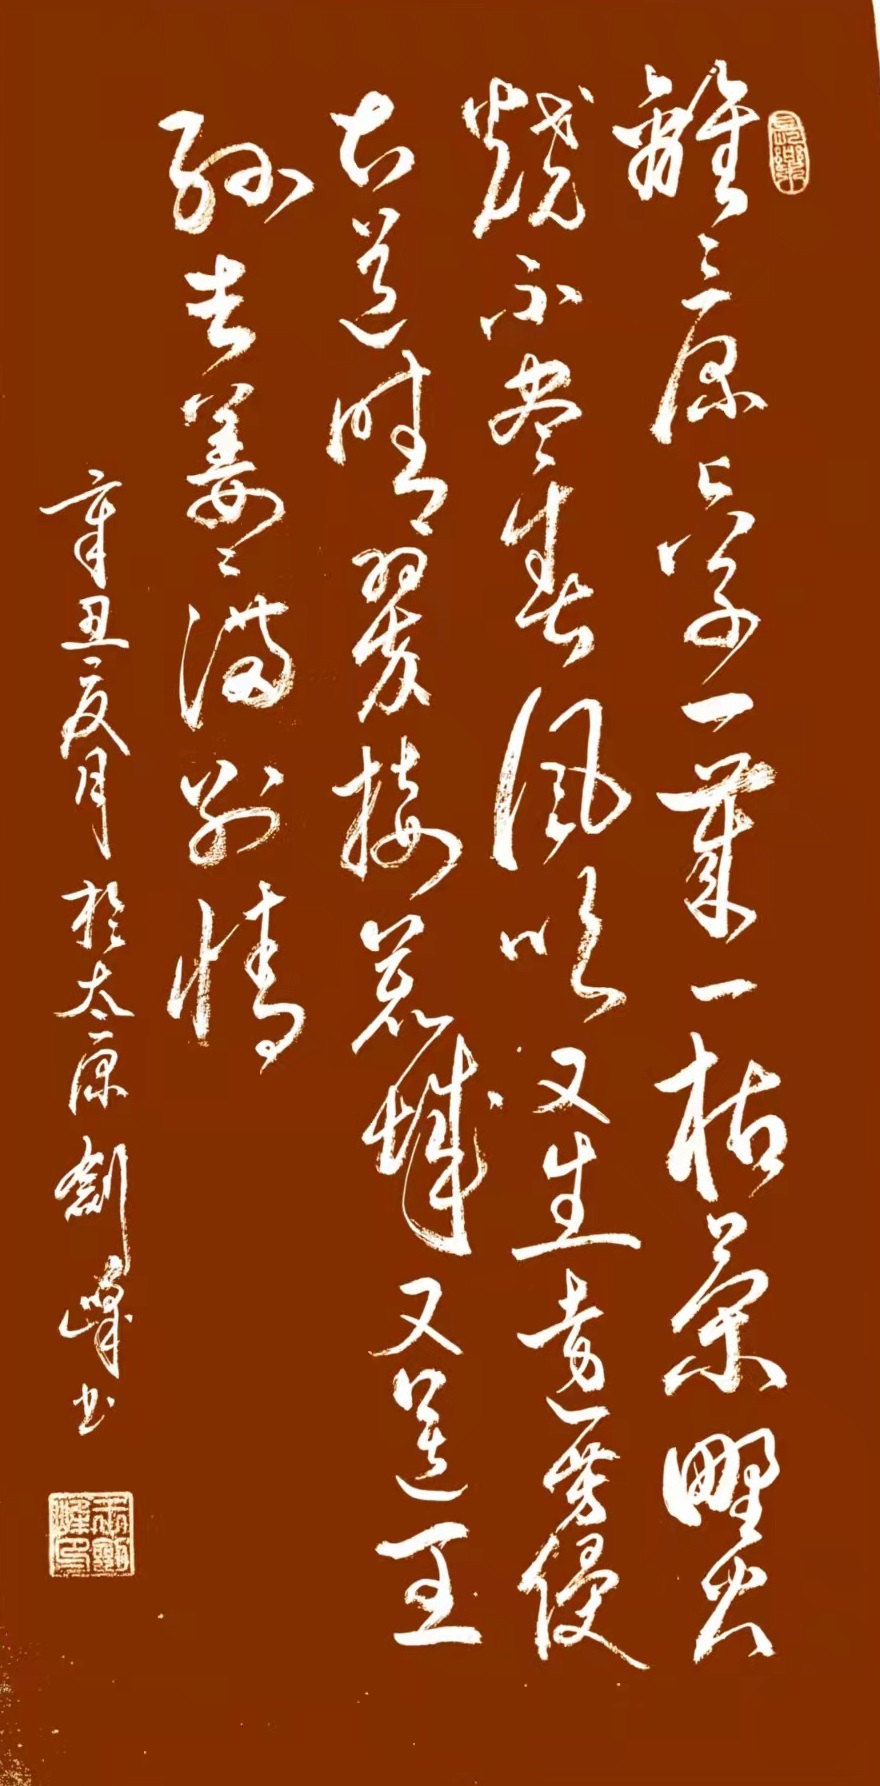 離〻原上草一歲一枯榮野火
燒不盡春風吹又生遠芳侵
古道晴翠接荒城又送王
孫去萋〻滿別情
辛丑夏月於太原劍峰书